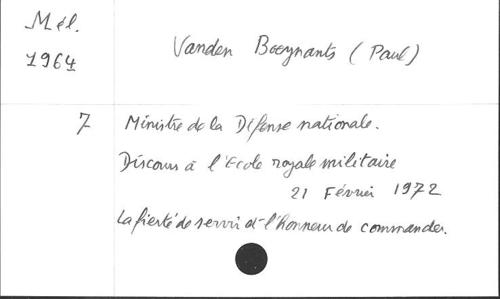 Mél.
1964
Vanden Boeynants (Paul)
7 Ministre de la Défense nationale.
Discours à l'Ecole royale militaire
21 Février 1972
La fierté de servir et l'honneur de commander.